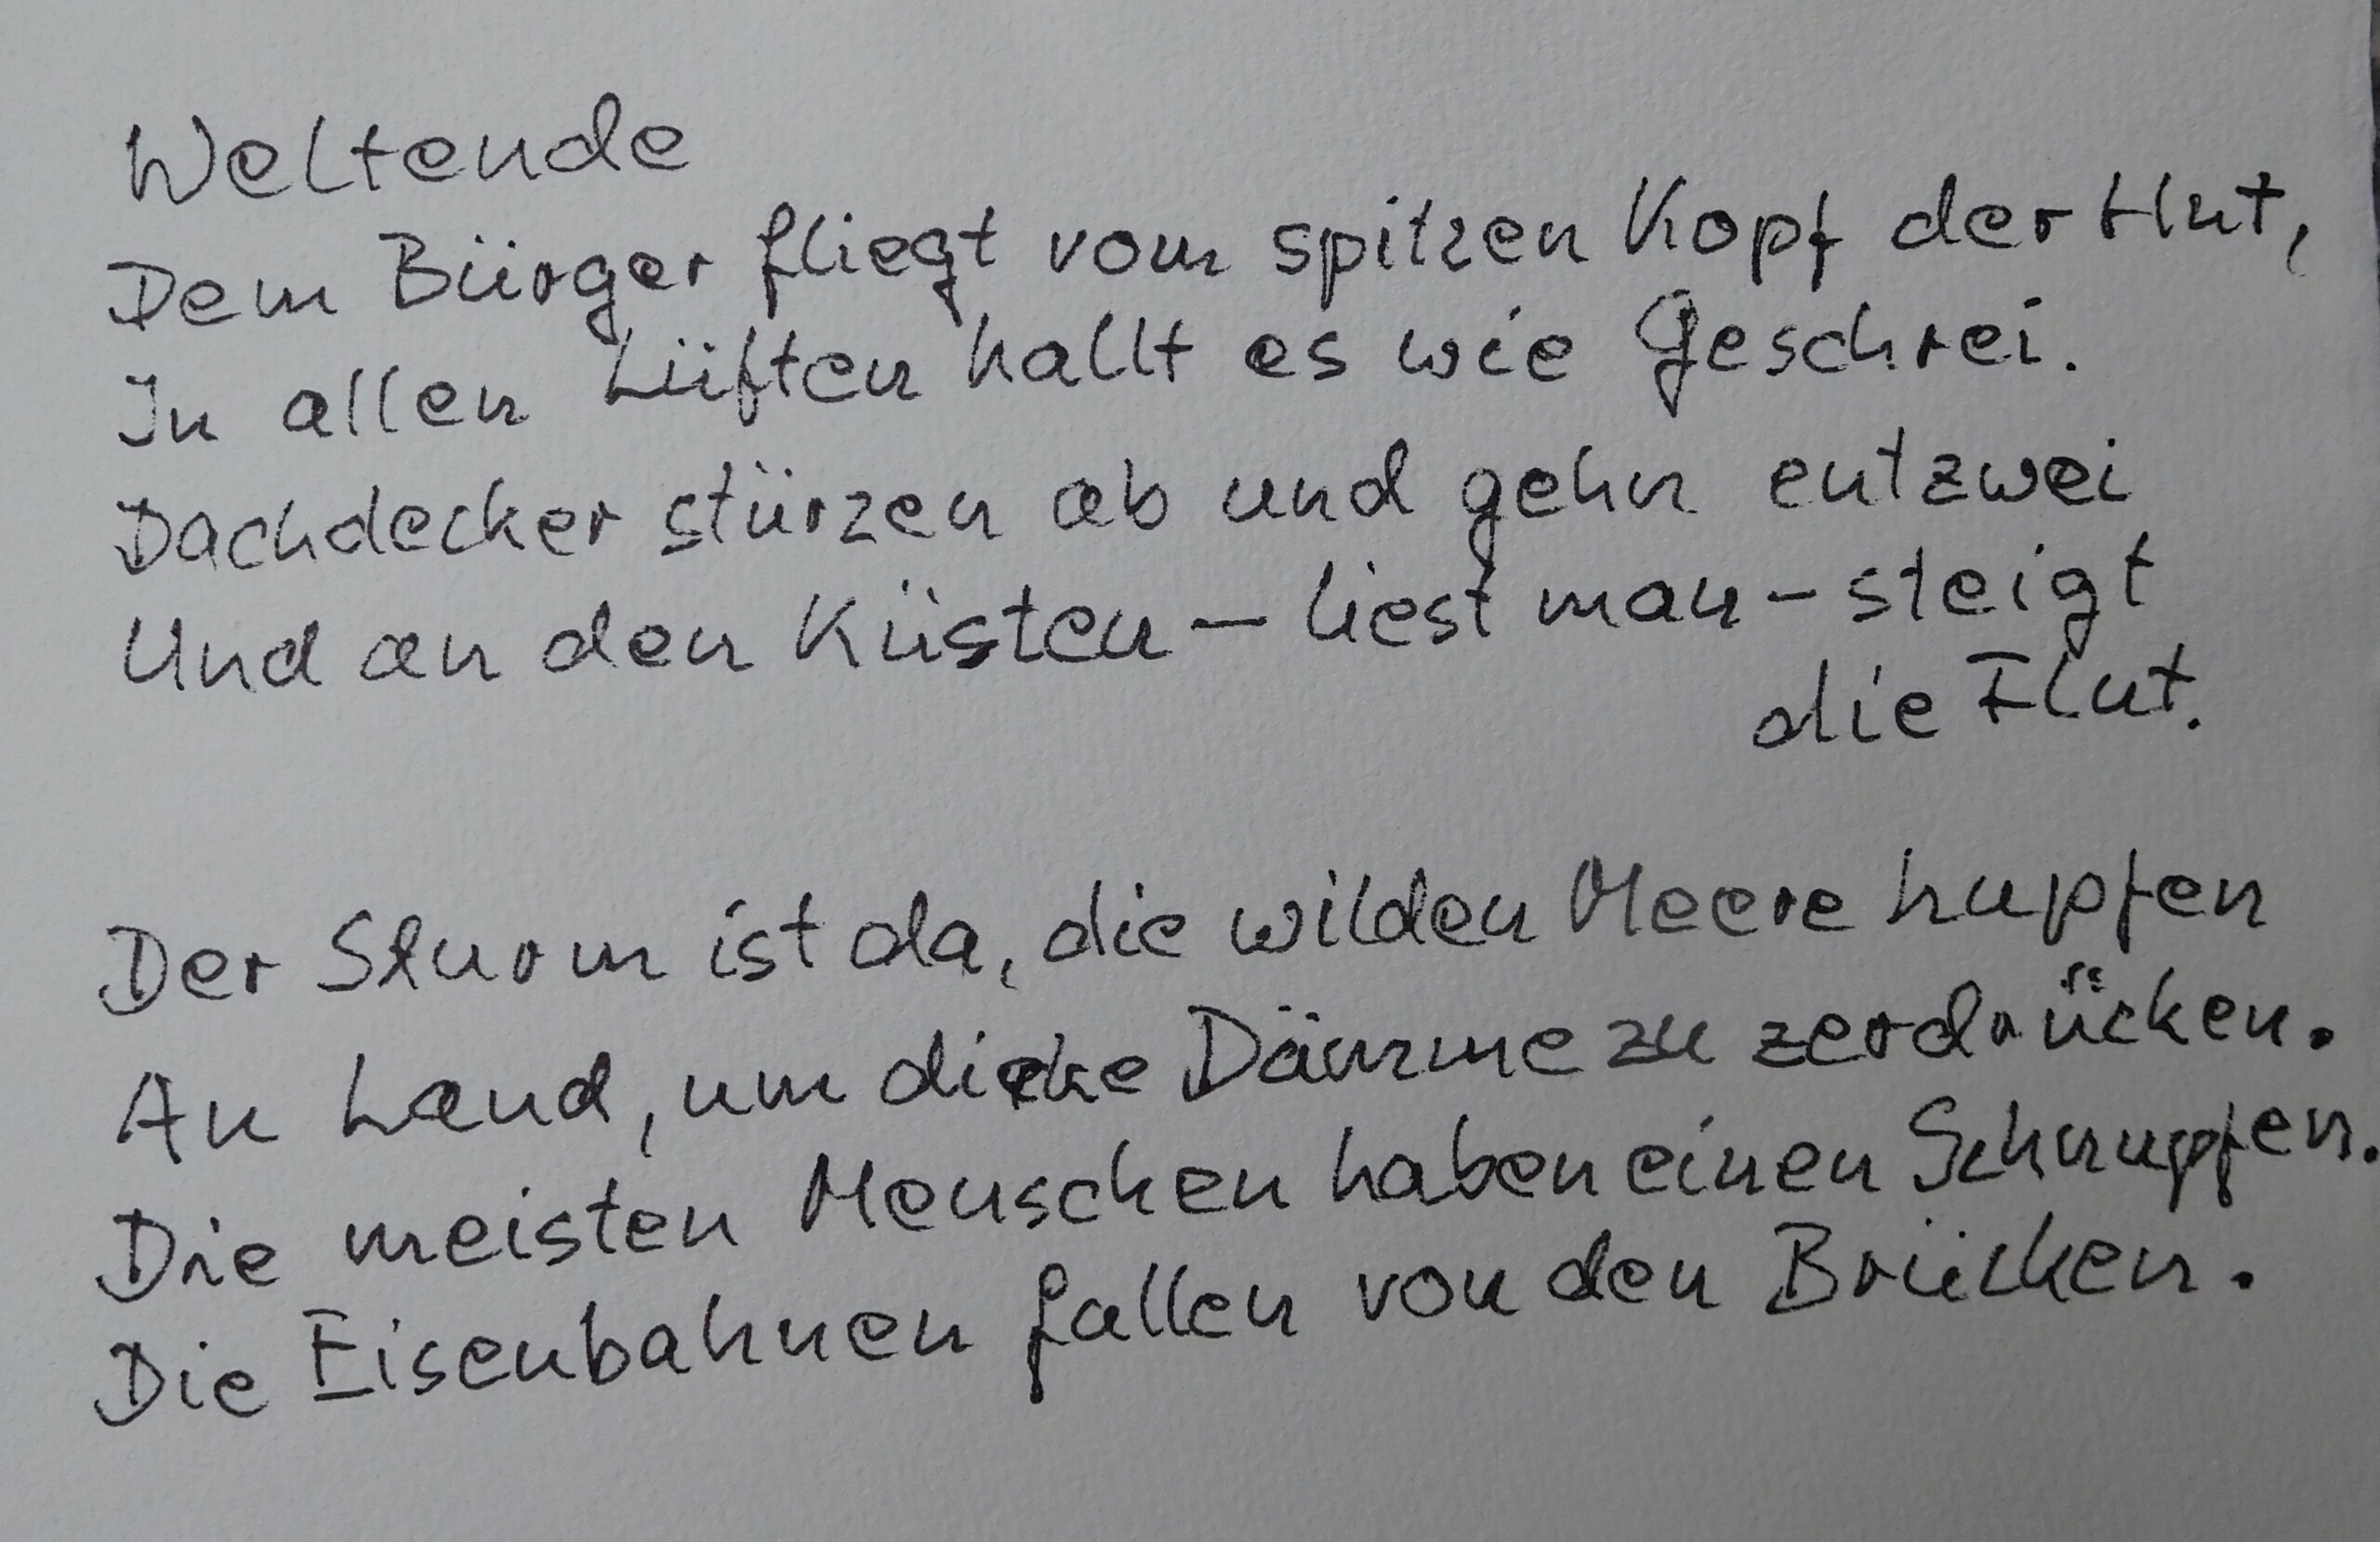 Weltende
Dem Bürger fliegt vom spitzen Kopf der Hut,
In allen Lüften hallt es wie Geschrei.
Dachdecker stürzen ab und gehn entzwei
Und an den Küsten – liest man – steigt
die Flut.
Der Sturm ist da, die wilden Meere hupfen
An Land, um dicke Dämme zu zerdrücken.
Die meisten Menschen haben einen Schnupfen.
Die Eisenbahnen fallen von den Brücken.